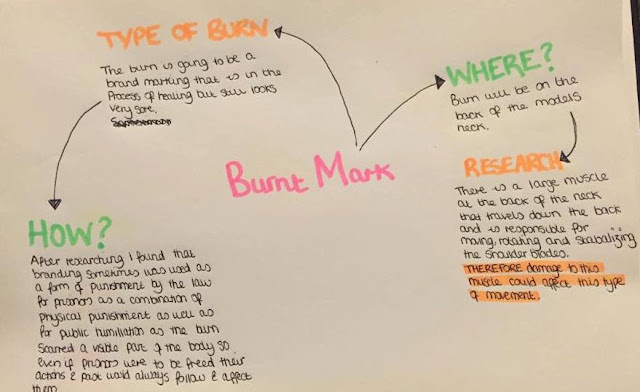 TYPE OF BURN
The burn is going to be a
brand marking that is in the
Process of healing but still looks
very sore.
WHERE?
Burn will be on the
back of the models
neck.
Burnt Mark
RESEARCH
There is a large muscle
at the back of the neck
that travels down the back
and is responsible for
moving, rotating and stabalizing
the shoulder blades.
THEREFORE damage to this
muscle could affect this type
of movement.
HOW?
After researching I found that
branding sometimes was used as
a form of punishment by the law
for prisoners as a combination of
physical punishment as well as
for public humiliation as the burn
scarred a visible part of the body so
even if prisoners were to be freed their
actions & past would always follow & affect
them